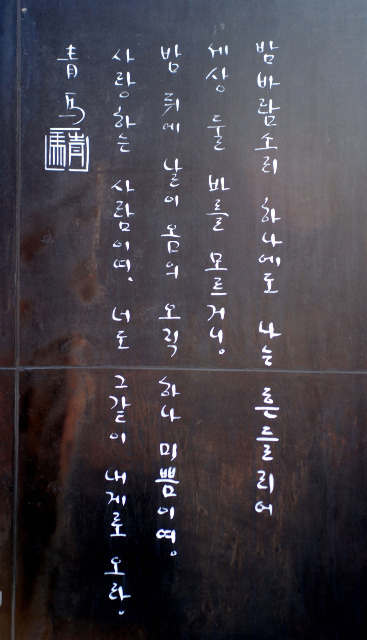 밤 바람소리 하나에도 나는 흔들리어
세상 둘 바를 모르거니。
밤 뒤에 날이 옴의 오직 하나 미쁨이여。
사랑하는 사람이여, 너도 그같이 내게로 오라。
青馬
青馬